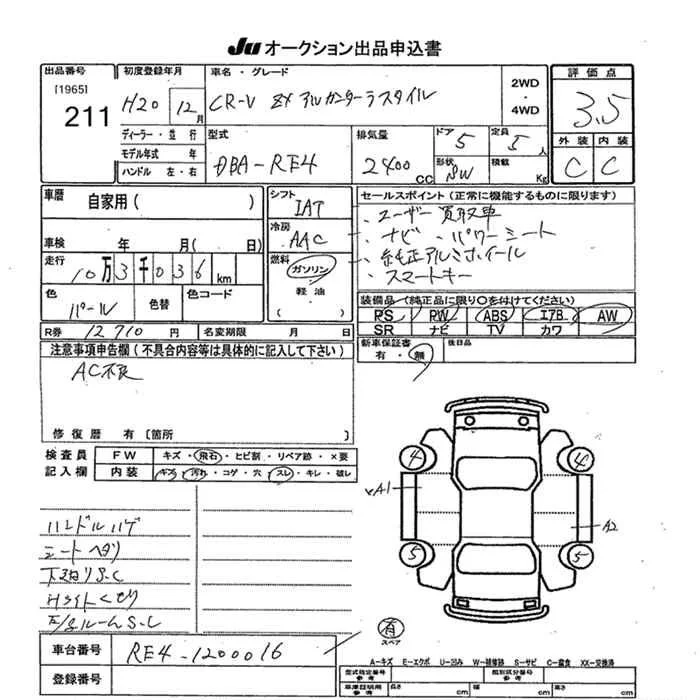 Ju オークション出品申込書
出品番号 初度登録年月 車名・グレード 2WD・4WD 評価点
[1965]
211 H20 12月 CR-V ZX アルカンターラスタイル 3.5
ディーラー・並行 型式 排気量 ドア 5 定員 5人 外装 内装
モデル年式 年 DBA-RE4 2400cc 形状 SW 積載 Kg C C
ハンドル 左・右
車歴 自家用( ) シフト IAT セールスポイント(正常に機能するものに限ります)
、ユーザー買取車
冷房 AAC 、ナビ、パワーシート
車検 年 月( 日) 、純正アルミホイール
走行 10万3千036km 燃料 ガソリン・軽油・( ) 、スマートキー
色 パール 色替 色コード
装備品(純正品に限り○を付けてください)
PS PW ABS エアB AW
R券 12710円 名変期限 月 日 SR ナビ TV カワ
注意事項申告欄(不具合内容等は具体的に記入して下さい) 新車保証書 有・無 後日品
AC不良
修復歴 有〔箇所 〕
検査員 FW キズ・飛石・ヒビ割・リペア跡・×要
記入欄 内装 キズ・汚れ・コゲ・穴・スレ・キレ・破レ
4 4
A1 A2
5 5
ハンドルハゲ
シートヘタリ
下廻りS.C
Hライトくもり
E/gルームS.C
有
スペア
車台番号 RE4-1200016
登録番号
A-キズ E-エクボ U-凹み W-補修跡 S-サビ C-腐食 XX-交換済
型式指定番号 参考 類別区分番号 参考
車庫証明用 参考 長さ cm 幅 cm 高さ cm